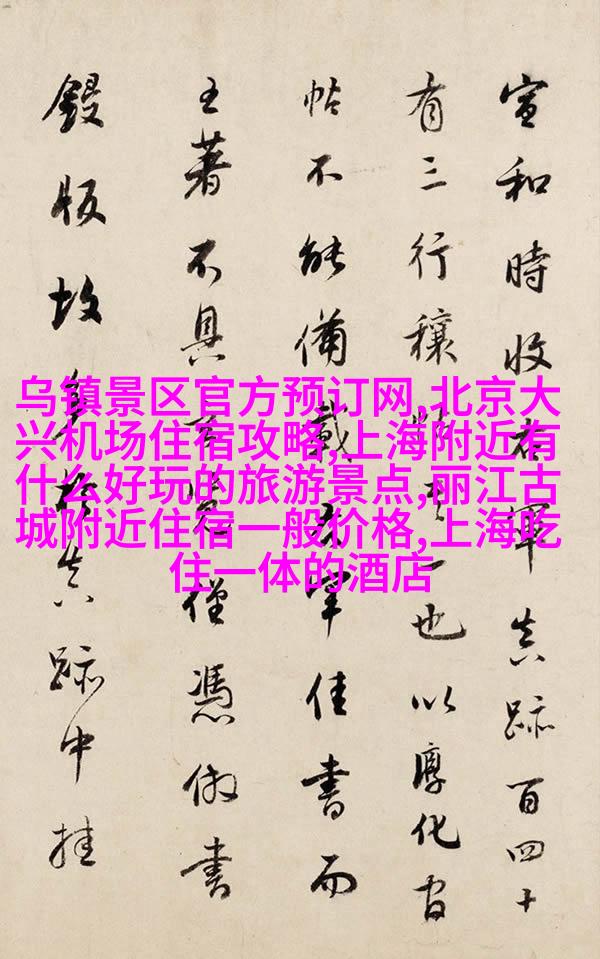 宣和時收右軍真跡百四十
有三行穰帖其一也以淳化官
帖不能備載右軍佳書而
王著不具僅憑倣書
鋟版故多於真跡中挂
乌镇景区官方预订网,北京大
兴机场住宿攻略,上海附近有
什么好玩的旅游景点,丽江古
城附近住宿一般价格,上海吃
住一体的酒店